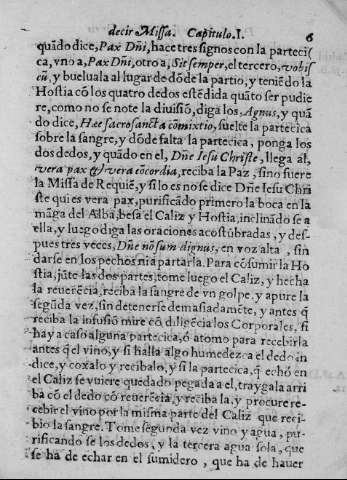 decir Missa. Capitulo. I. 6
quãdo dice, Pax Dñi, hace tres signos con la parteci
ca, vno a, Pax Dñi, otro a, Sit semper, el tercero, vobis
cũ, y bueluala al lugar de dõde la partio, y teniẽdo la
Hostia cõ los quatro dedos estẽdida quãto ser pudie
re, como no se note la diuisiõ, diga los, Agnus, y quã
do dice, Hæc sacrosancta cõmixtio, suelte la partecica
sobre la sangre, y dõde falta la partecica, ponga los
dos dedos, y quãdo en el, Dñe Iesu Christe, llega al,
vera pax & vera cõcordia, reciba la Paz, sino fuere
la Missa de Requiẽ, y si lo es no se dice Dñe Iesu Chri
ste qui es vera pax, purificãdo primero la boca en la
mãga del Alba, besa el Caliz y Hostia, inclinãdo se a
ella, y luego diga las oraciones acostũbradas, y des-
pues tres veces, Dñe nõ sum dignus, en voz alta, sin
darse en los pechos ni a partarla. Para cõsumir la Ho
stia, jũte las dos partes, tome luego el Caliz, y hecha
la reuerẽcia, reciba la sangre de vn golpe, y apure la
segũda vez, sin detenerse demasiadamẽte, y antes q̃
reciba la infusiõ mire cõ diligẽcia los Corporales, si
hay a caso alguna partecica, ó atomo para recebirla
antes q̃ el vino, y si halla algo humedezca el dedo in
dice, y coxalo y recibalo, y si la partecica, q̃ echó en
el Caliz se vuiere quedado pegada a el, traygala arri
ba cõ el dedo cõ reuerẽcia, y reciba la, y procure re-
cebir el vino por la misma parte del Caliz que reci-
bio la sangre. Tome segunda vez vino y agua, pu-
rificando se los dedos, y la tercera agua sola, que
se ha de echar en el sumidero, que ha de hauer